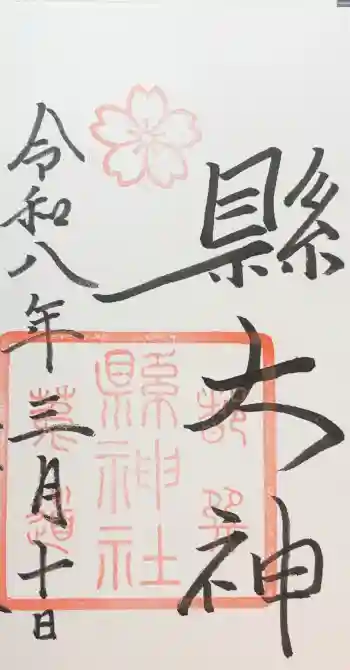 縣大神
縣神社
菟道
令和八年三月十日